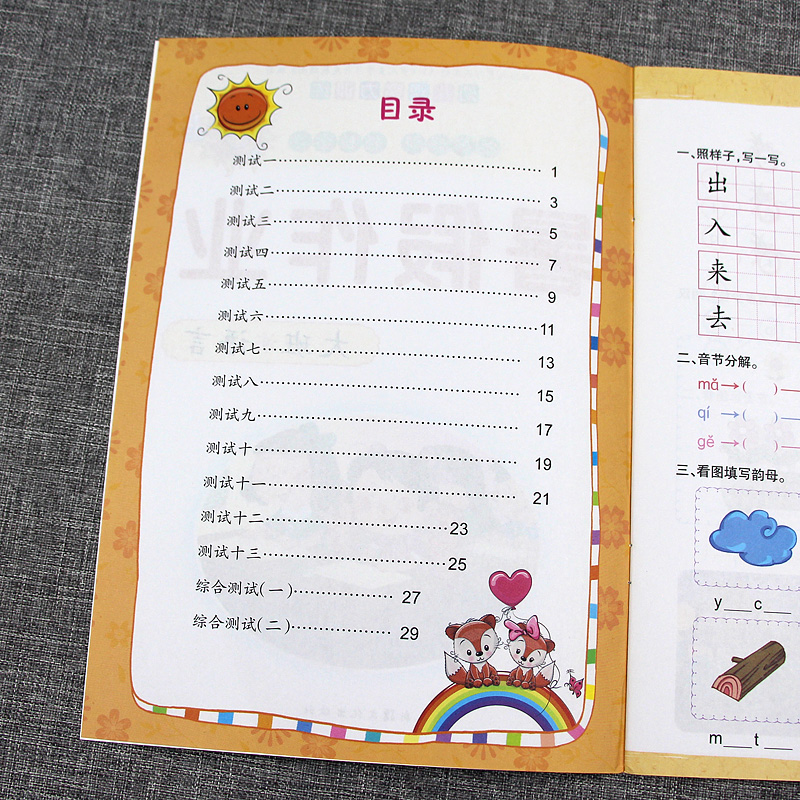 目录
测试一 1
测试二 3
测试三 5
测试四 7
测试五 9
测试六 11
测试七 13
测试八 15
测试九 17
测试十 19
测试十一 21
测试十二 23
测试十三 25
综合测试(一) 27
综合测试(二) 29
一、照样子,写一写。
出
入
来
去
二、音节分解。
mǎ→( )
qí →( )
gě →( )
三、看图填写韵母。
y___c___
m___t___